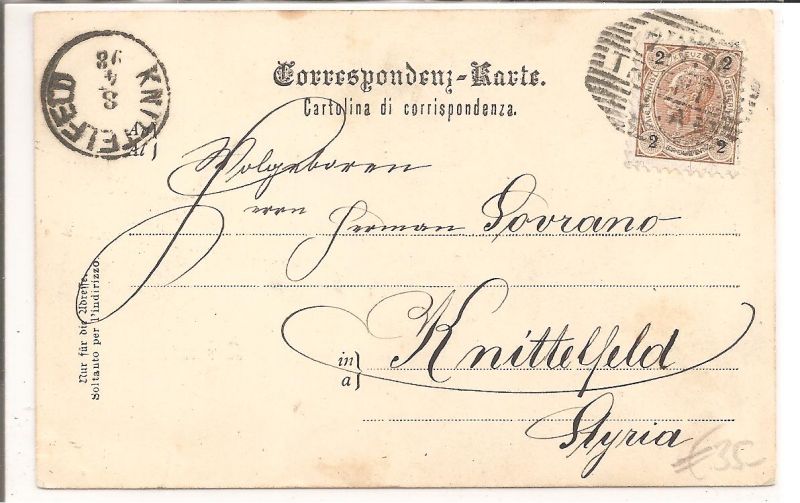 KNITTELFELD
8/4
98
Correspondenz-Karte.
Cartolina di corrispondenza.
2 2
2 2
An
Al
Wolgeboren
Herrn Herman Sovrano
in
a
Knittelfeld
Styria
Nur für die Adresse.
Soltanto per l'indirizzo.
€ 35-